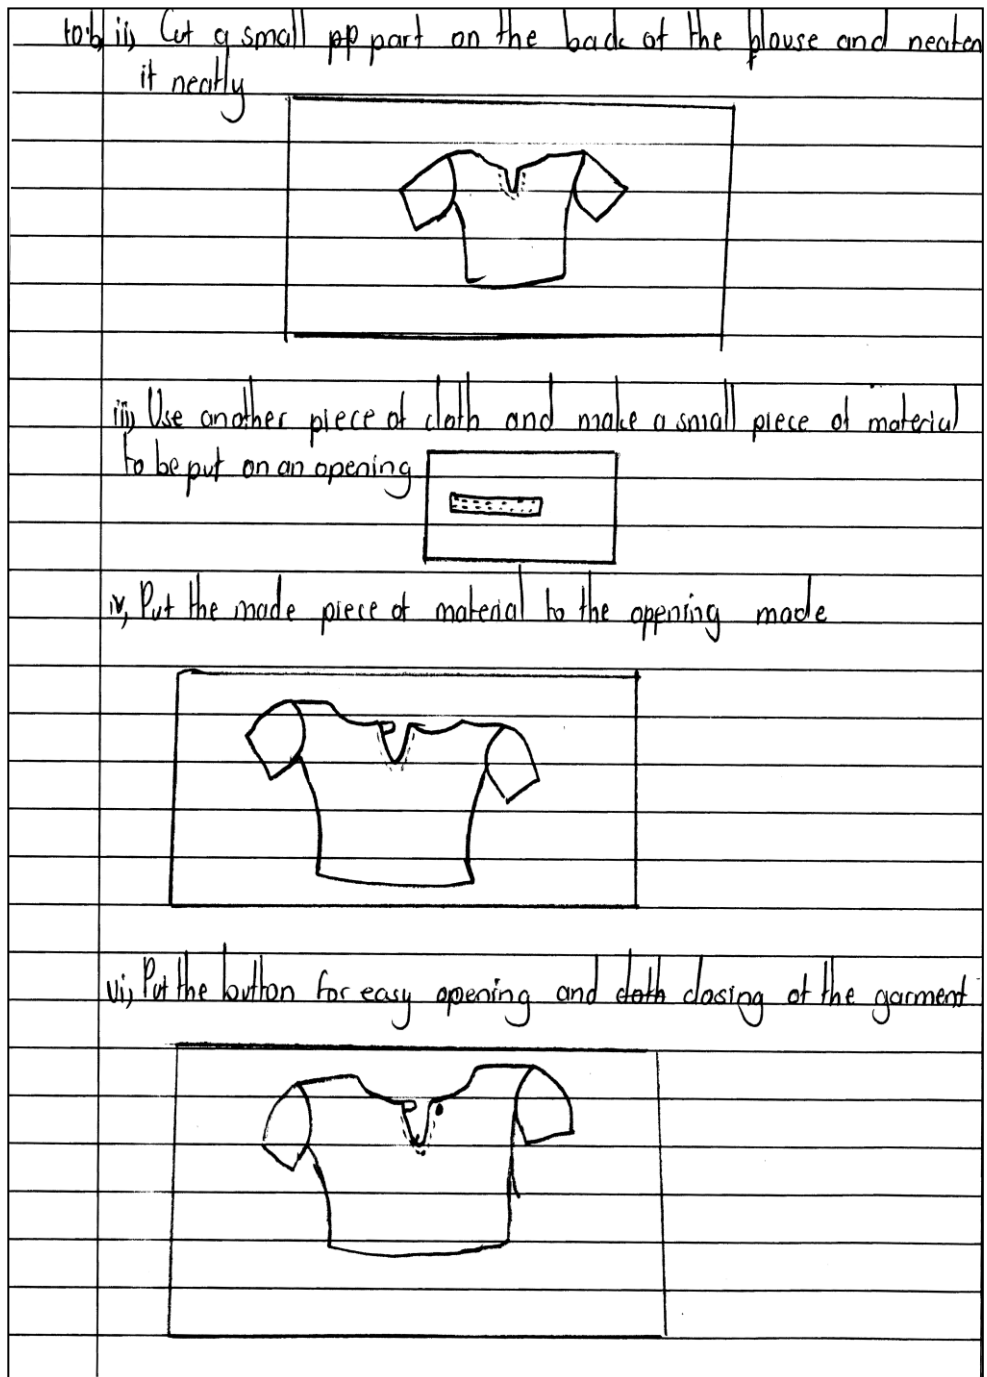 10.b ii) Cut a small pp part on the back of the blouse and neaten
it neatly
iii) Use another piece of cloth and make a small piece of material
to be put on an opening
iv) Put the made piece of material to the opening made
vi) Put the button for easy opening and cloth closing of the garment